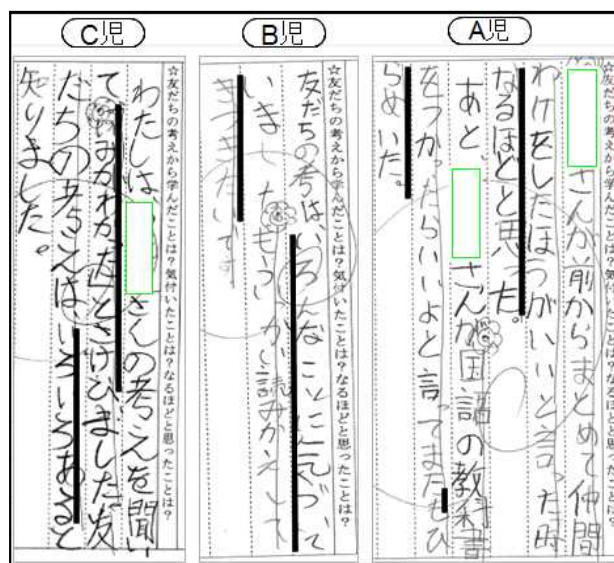 A児
☆友だちの考えから学んだことは?気付いたことは?なるほどと思ったことは?
さんが前からまとめて仲間
わけをしたほうがいいと言った時
なるほどと思った。
あと、さんが国語の教科書
をつかったらいいよと言ってまたもひ
らめいた。
B児
☆友だちの考えから学んだことは?気付いたことは?なるほどと思ったことは?
友だちの考は、いろんなことに気づいて
いました もう かい読みかえして
きづきたいです
C児
☆友だちの考えから学んだことは?気付いたことは?なるほどと思ったことは?
わたしは、さんの考えを聞い
て わかった とさけびました友
だちの考えは、いろいろあると
知りました。